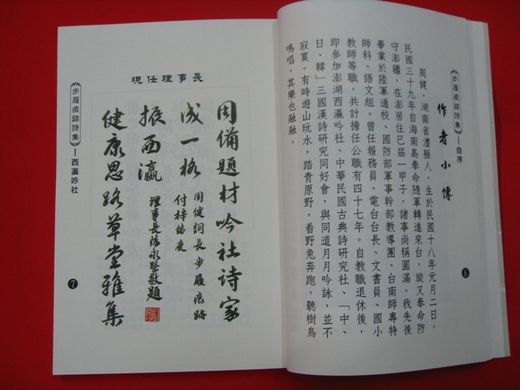 《步履痕蹟詩集》—自序
作者小傳
周健,湖南省澧縣人,生於民國十八年元月二日,
民國三十九年自海南島奉命隨軍轉進來台,旋又奉命防
守澎疆,在澎居住已屆一甲子,諸事尚稱圓滿。我先後
畢業於陸軍通校、國防部軍事幹部教導團、台南師專特
師科、語文組。曾任報務員、電台台長、文書員、國小
教師等職,共計擔任公職有四十七年。自教職退休後,
即參加澎湖西瀛吟社、中華民國古典詩研究社、「中、
日、韓」三國漢詩研究同好會,與同道月月吟詠,並不
寂寞。有時遊山玩水,踏青原野,看野兔奔跑,聽樹鳥
鳴唱,其樂也融融。
6
《步履痕蹟詩集》—西瀛吟社
現任理事長
周備題材吟社诗家
成一格
周健詞長步履痕跡
付梓誌慶
振西瀛
理事長洪永 敬題
健康思路草堂雅集
7